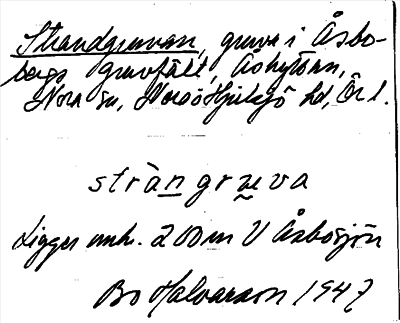 Strandgruvan, gruva i Åsbo-
bergs gruvfält, Åshyttan,
Nora sn, Nora o Hjulsjö hd, Ör l.
stràngrʉ̱va
Ligger omkr. 200 m V Åsbosjön
Bo Halvarson 1947